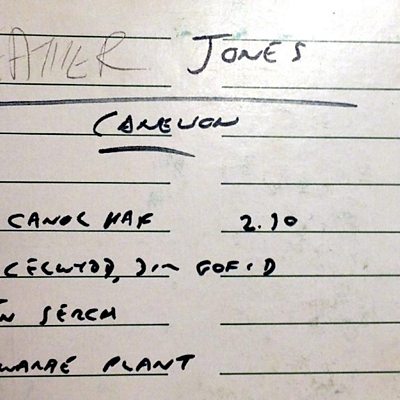 EATHER JONES
CANEUON
CANOL HAF 2.30
CELWYDD, DIM GOFID
ÂN SERCH
WARAE PLANT